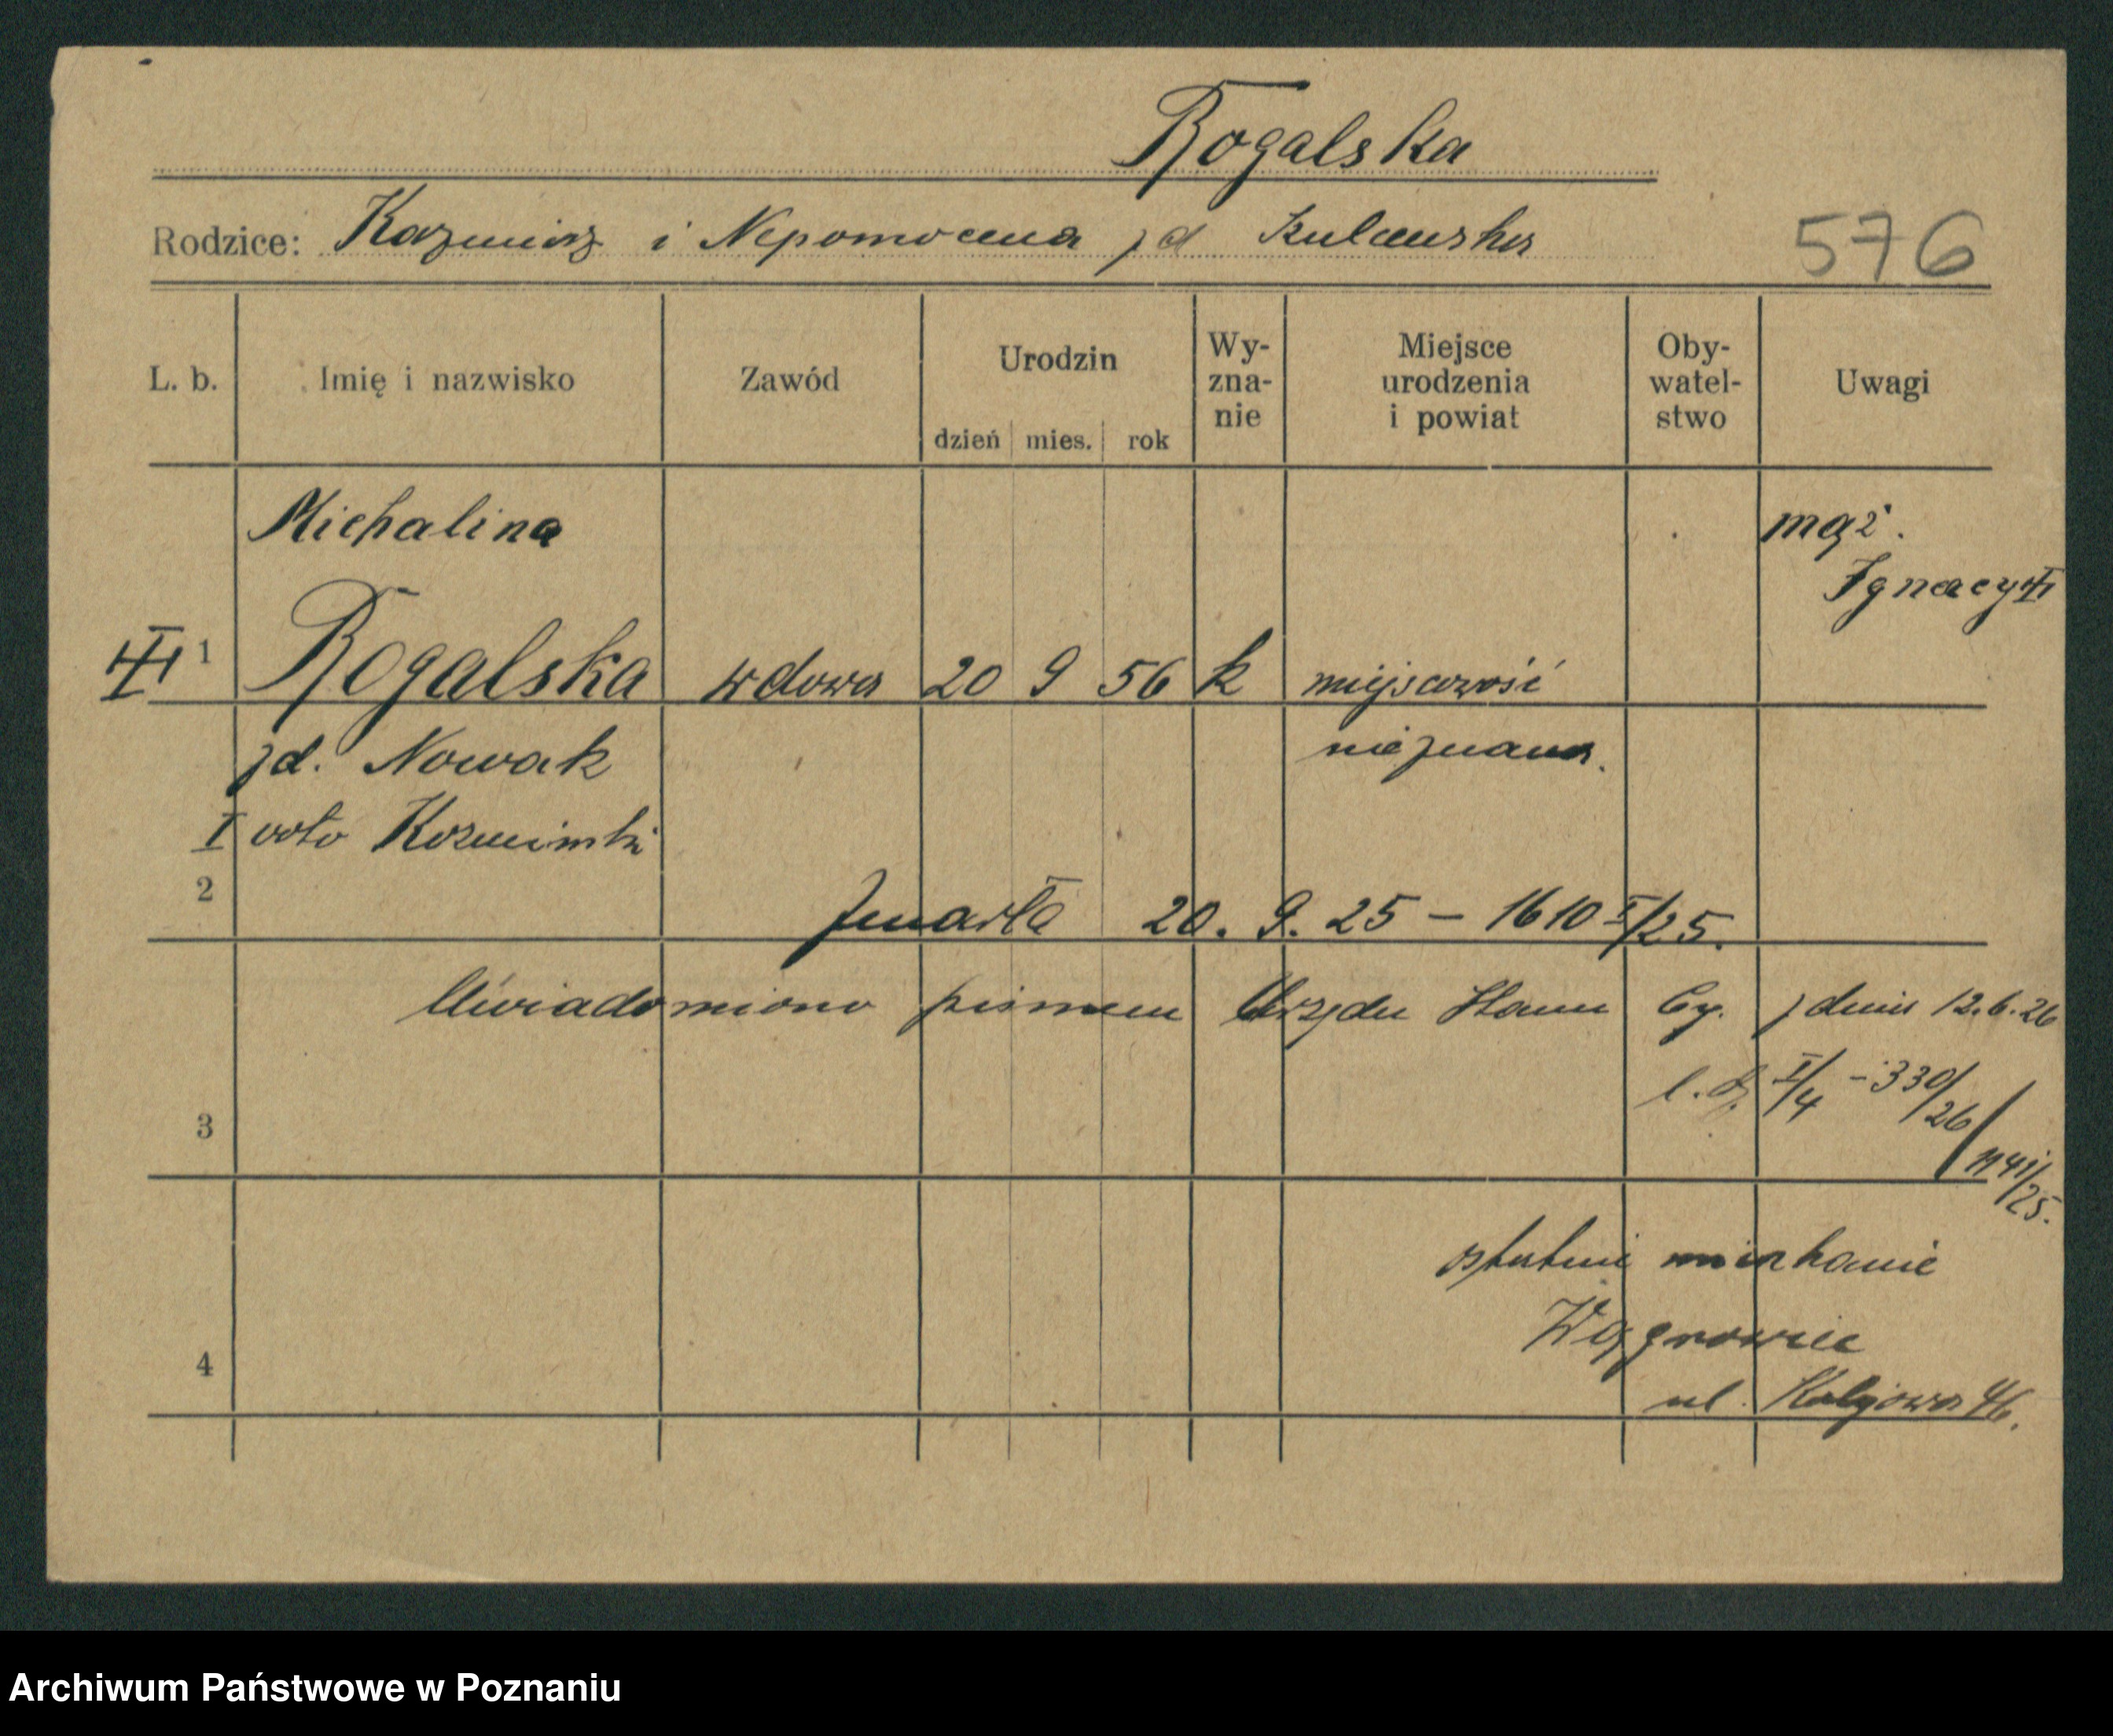 Rogalska
Rodzice: Kazmierz i Nepomocena zd Kulawska
576
L. b. Imię i nazwisko Zawód Urodzin dzień mies. rok Wy-zna-nie Miejsce urodzenia i powiat Oby-watel-stwo Uwagi
Michalina mąż.
Ignacy
1 Rogalska wdowa 20 9 56 k miejscowość
zd. Nowak nieznana.
I voto
2 Zmarła 20. 9. 25 – 1610 I/25.
Uwiadomiono pismem Urzędu Stanu Cy. z dnia 12.6.26
l. dz. I/4 – 330/26
3 1141/25.
ostatnie mieszkanie
Wągrowiec
4 ul. Kolejowa 46.
Archiwum Państwowe w Poznaniu